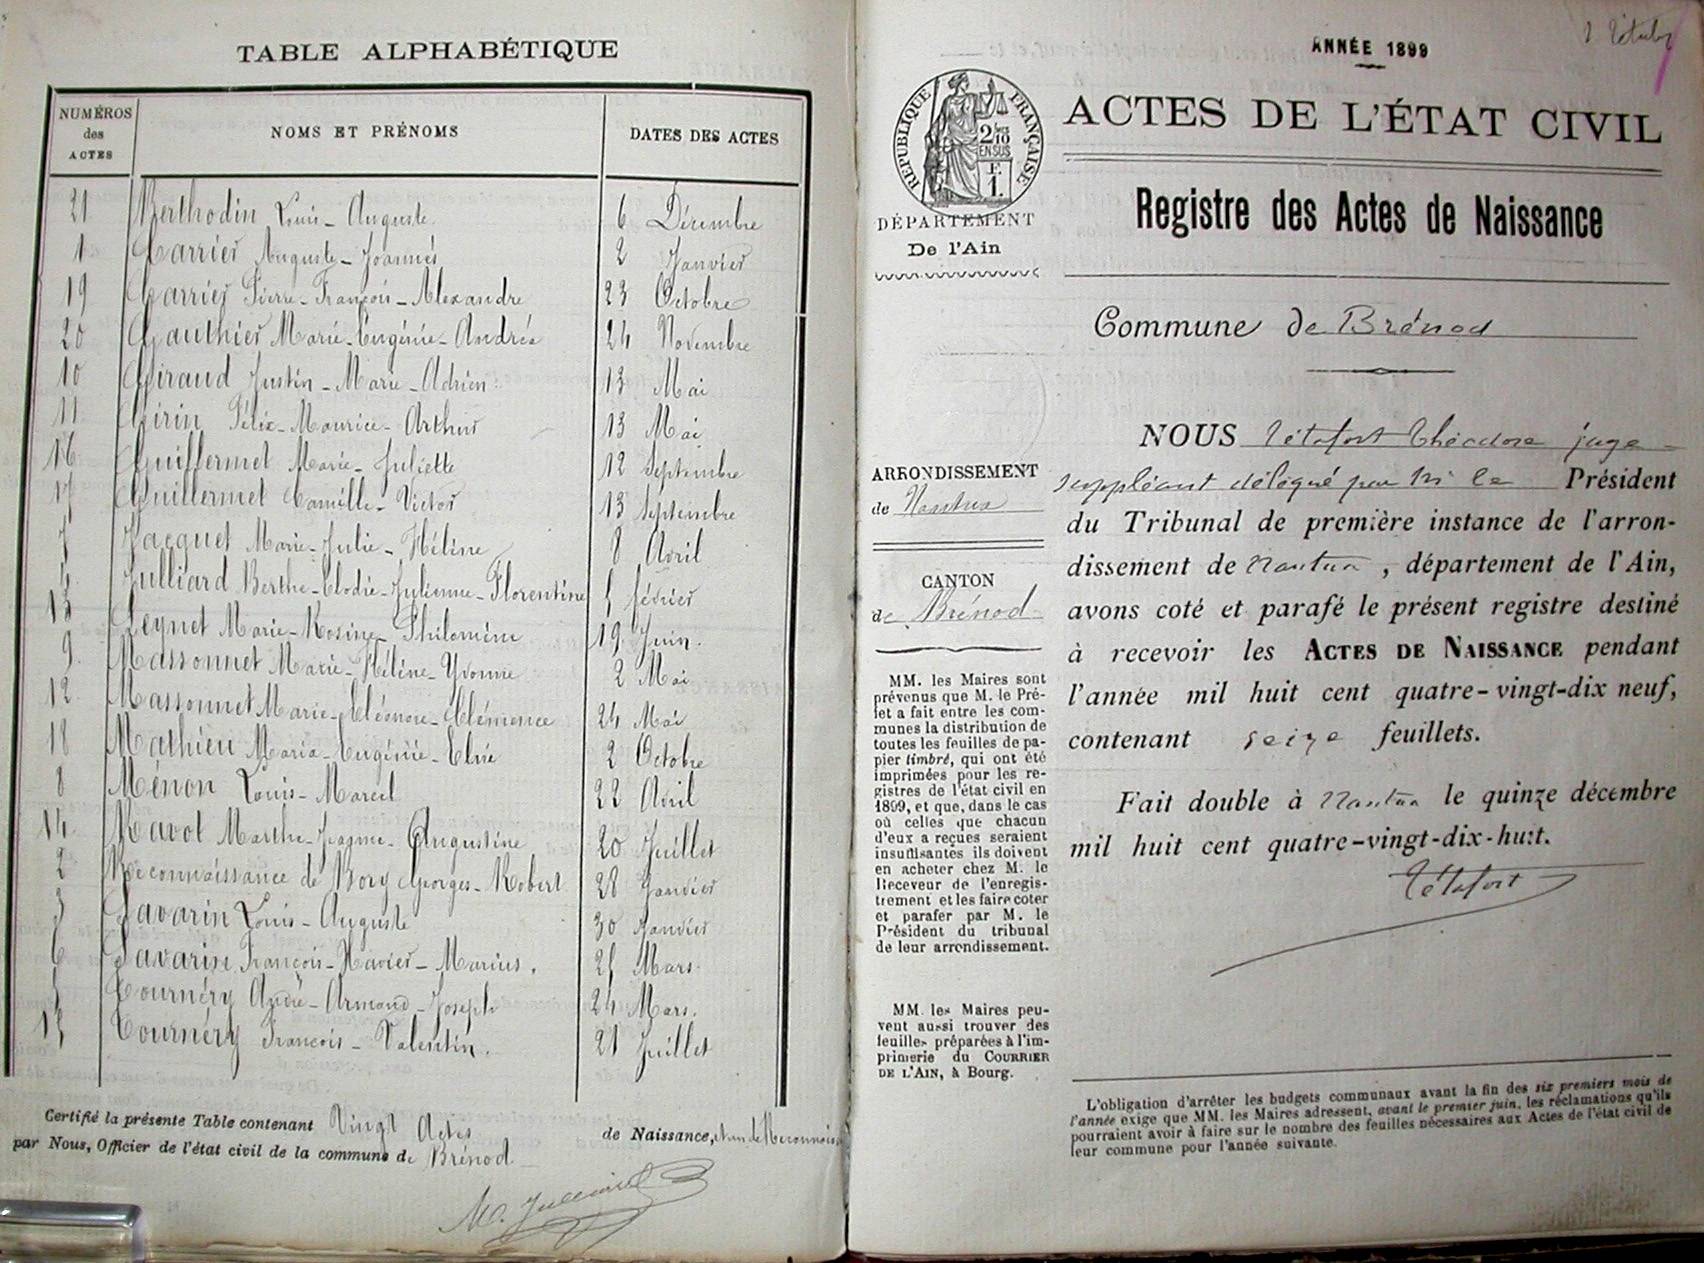 TABLE ALPHABÉTIQUE
NUMÉROS des ACTES
NOMS ET PRÉNOMS
DATES DES ACTES
21 Berthodin Louis - Auguste. 6 Décembre
1 Carrier Auguste - Joannès 2 Janvier
19 Carrier Pierre - François - Alexandre 23 Octobre
20 Gauthier Marie - Eugénie - Andréa 24 Novembre
10 Giraud Justin - Marie - Adrien 13 Mai
11 Girin Félix - Maurice - Arthur 13 Mai
16 Guillermet Marie - Juliette 12 Septembre
17 Guillermet Camille - Victor 13 Septembre
7 Jacquet Marie - Julie - Hélène 8 Avril
4 Julliard Berthe - Elodie - Julienne - Florentine 5 février
13 Peynet Marie - Rosine - Philomène 19 Juin.
9 Massonnet Marie - Hélène - Yvonne 2 Mai
12 Massonnet Marie - Eléonore - Clémence 24 Mai
18 Mathieu Maria - Eugénie - 2 Octobre
8 Ménon Louis - Marcel 22 Avril
14 Ravot Marthe - Jeanne - Augustine 20 Juillet
2 Reconnaissance de Bory Georges - Robert 28 Janvier
3 Savarin Louis - Auguste 30 Janvier
6 Savarin François - Xavier - Marius. 25 Mars.
5 Tournéry André - Armand - Joseph 24 Mars.
15 Tournéry François - Valentin. 21 Juillet
Certifié la présente Table contenant Vingt Actes de Naissance, et un de Reconnais.
par Nous, Officier de l'état civil de la commune de Brénod
M. Julliard
ANNÉE 1899
RÉPUBLIQUE FRANÇAISE
2/10 EN SUS
F. 1.
ACTES DE L'ÉTAT CIVIL
DÉPARTEMENT
De l'Ain
Registre des Actes de Naissance
Commune de Brénod
ARRONDISSEMENT
de Nantua
CANTON
de Brénod
MM. les Maires sont
prévenus que M. le Pré-
fet a fait entre les com-
munes la distribution de
toutes les feuilles de pa-
pier timbré, qui ont été
imprimées pour les re-
gistres de l'état civil en
1899, et que, dans le cas
où celles que chacun
d'eux a reçues seraient
insuffisantes ils doivent
en acheter chez M. le
Receveur de l'enregis-
trement et les faire coter
et parafer par M. le
Président du tribunal
de leur arrondissement.
MM. les Maires peu-
vent aussi trouver des
feuilles préparées à l'im-
primerie du COURRIER
DE L'AIN, à Bourg.
NOUS Tétafort Théodore juge
suppléant délégué par M le Président
du Tribunal de première instance de l'arron-
dissement de Nantua, département de l'Ain,
avons coté et parafé le présent registre destiné
à recevoir les ACTES DE NAISSANCE pendant
l'année mil huit cent quatre-vingt-dix neuf,
contenant seize feuillets.
Fait double à Nantua le quinze décembre
mil huit cent quatre-vingt-dix-huit.
Tétafort
L'obligation d'arrêter les budgets communaux avant la fin des six premiers mois de
l'année exige que MM. les Maires adressent, avant le premier juin, les réclamations qu'ils
pourraient avoir à faire sur le nombre des feuilles nécessaires aux Actes de l'état civil de
leur commune pour l'année suivante.